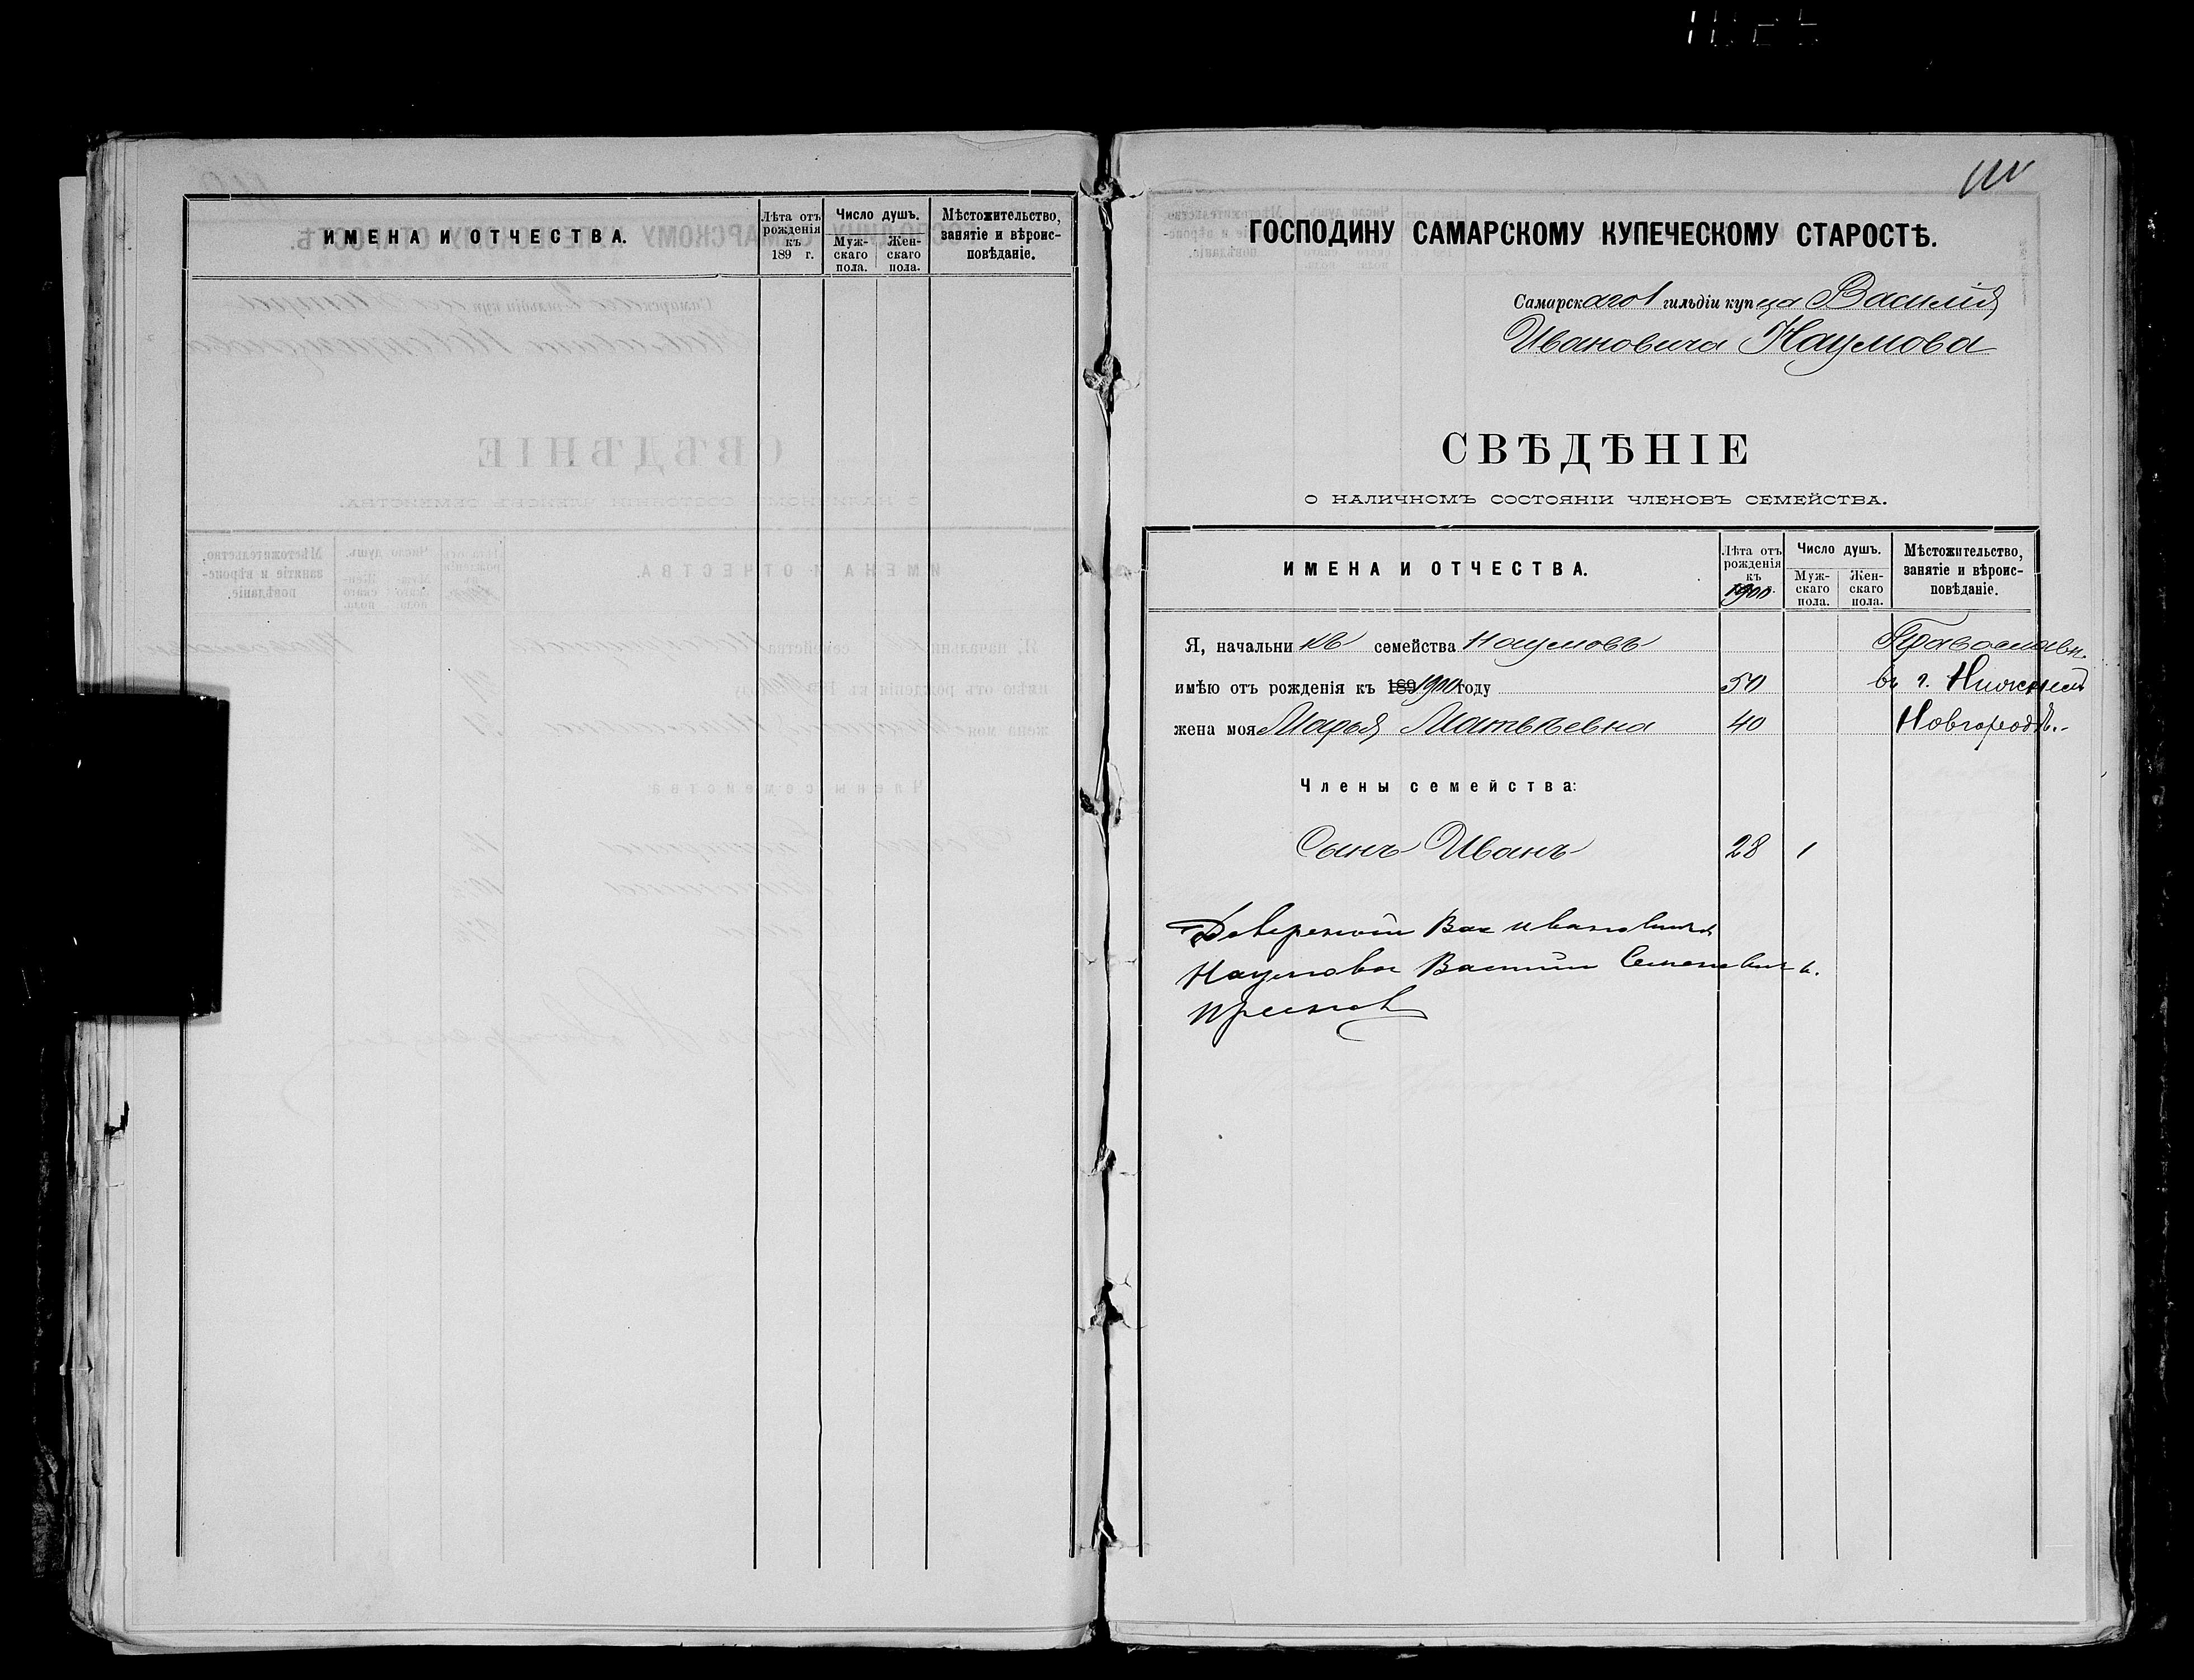 ИМЕНА И ОТЧЕСТВА.
Лѣта отъ рожденія къ 189 г.
Число душъ.
Мужскаго пола.
Женскаго пола.
Мѣстожительство, занятіе и вѣроисповѣданіе.
111
ГОСПОДИНУ САМАРСКОМУ КУПЕЧЕСКОМУ СТАРОСТѢ.
Самарскаго 1 гильдіи купца Василія
Ивановича Наумова
СВѢДѢНІЕ
О НАЛИЧНОМЪ СОСТОЯНІИ ЧЛЕНОВЪ СЕМЕЙСТВА.
ИМЕНА И ОТЧЕСТВА.
Лѣта отъ рожденія къ 1900 г.
Число душъ.
Мужскаго пола.
Женскаго пола.
Мѣстожительство, занятіе и вѣроисповѣданіе.
Я, начальникъ семейства Наумовъ Православн.
имѣю отъ рожденія къ 189 1900 году 50 въ г. Нижнемъ
жена моя Марья Матвѣевна 40 Новгородѣ.
Члены семейства:
Сынъ Иванъ 28 1
Довѣренный Вас Ивановича
Наумова Василий Семеновичъ